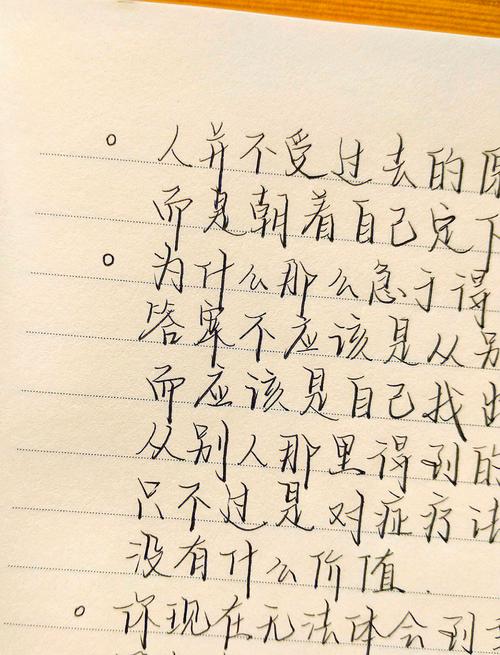 人并不受过去的原
而是朝着自己定下
为什么那么急于得
答案不应该是从别
而应该是自己找出
从别人那里得到的
只不过是对症疗法
没有什么价值.
你现在无法体会到